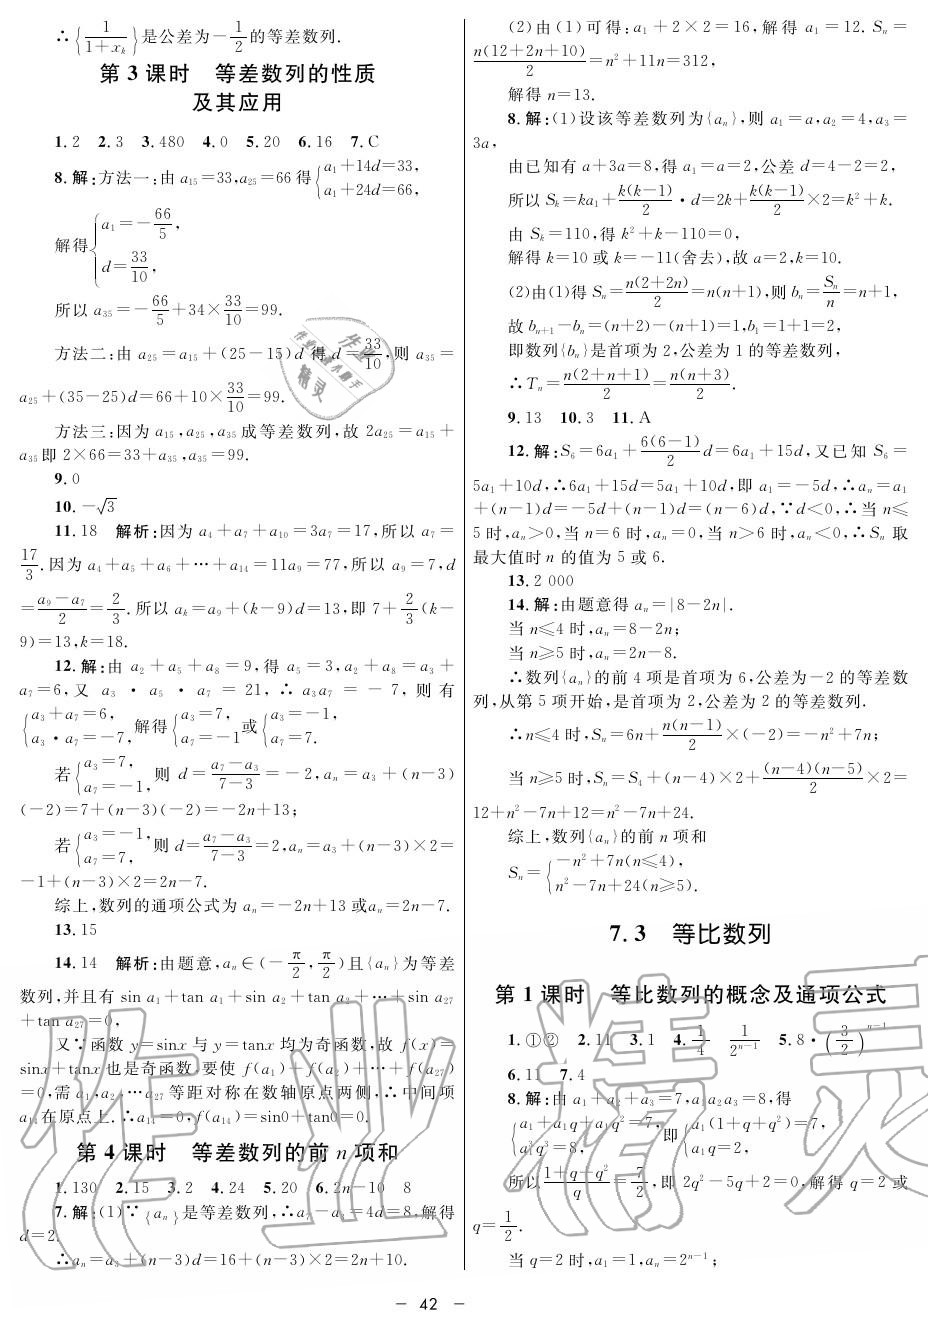 ∴{1/(1+xₖ)}是公差为−1/2的等差数列.
第 3 课时　等差数列的性质
及其应用
1. 2　2. 3　3. 480　4. 0　5. 20　6. 16　7. C
8. 解:方法一:由 a₁₅=33,a₂₅=66 得{a₁+14d=33, a₁+24d=66,
解得{a₁=−66/5, d=33/10,
所以 a₃₅=−66/5+34×33/10=99.
方法二:由 a₂₅=a₁₅+(25−15)d 得 d=33/10,则 a₃₅=
a₂₅+(35−25)d=66+10×33/10=99.
方法三:因为 a₁₅,a₂₅,a₃₅成等差数列,故 2a₂₅=a₁₅+
a₃₅即 2×66=33+a₃₅,a₃₅=99.
9. 0
10. −√3
11. 18　解析:因为 a₄+a₇+a₁₀=3a₇=17,所以 a₇=
17/3.因为 a₄+a₅+a₆+⋯+a₁₄=11a₉=77,所以 a₉=7,d
=(a₉−a₇)/2=2/3.所以 aₖ=a₉+(k−9)d=13,即 7+2/3(k−
9)=13,k=18.
12. 解:由 a₂+a₅+a₈=9,得 a₅=3,a₂+a₈=a₃+
a₇=6,又 a₃・a₅・a₇=21,∴a₃a₇=−7,则有
{a₃+a₇=6, a₃・a₇=−7,解得{a₃=7, a₇=−1或{a₃=−1, a₇=7.
若{a₃=7, a₇=−1,则 d=(a₇−a₃)/(7−3)=−2,aₙ=a₃+(n−3)
(−2)=7+(n−3)(−2)=−2n+13;
若{a₃=−1, a₇=7,则 d=(a₇−a₃)/(7−3)=2,aₙ=a₃+(n−3)×2=
−1+(n−3)×2=2n−7.
综上,数列的通项公式为 aₙ=−2n+13 或aₙ=2n−7.
13. 15
14. 14　解析:由题意,aₙ∈(−π/2,π/2)且{aₙ}为等差
数列,并且有 sin a₁+tan a₁+sin a₂+tan a₂+⋯+sin a₂₇
+tan a₂₇=0,
又∵函数 y=sinx 与 y=tanx 均为奇函数,故 f(x)=
sinx+tanx也是奇函数,要使 f(a₁)+f(a₂)+⋯+f(a₂₇)
=0,需 a₁,a₂,⋯a₂₇等距对称在数轴原点两侧,∴中间项
a₁₄在原点上.∴a₁₄=0,f(a₁₄)=sin0+tan0=0.
第 4 课时　等差数列的前 n 项和
1. 130　2. 15　3. 2　4. 24　5. 20　6. 2n−10　8
7. 解:(1)∵{aₙ}是等差数列,∴a₇−a₃=4d=8,解得
d=2.
∴aₙ=a₃+(n−3)d=16+(n−3)×2=2n+10.
(2)由(1)可得:a₁+2×2=16,解得 a₁=12. Sₙ=
n(12+2n+10)/2=n²+11n=312,
解得 n=13.
8. 解:(1)设该等差数列为{aₙ},则 a₁=a,a₂=4,a₃=
3a,
由已知有 a+3a=8,得 a₁=a=2,公差 d=4−2=2,
所以 Sₖ=ka₁+k(k−1)/2・d=2k+k(k−1)/2×2=k²+k.
由 Sₖ=110,得 k²+k−110=0,
解得 k=10 或 k=−11(舍去),故 a=2,k=10.
(2)由(1)得 Sₙ=n(2+2n)/2=n(n+1),则 bₙ=Sₙ/n=n+1,
故 bₙ₊₁−bₙ=(n+2)−(n+1)=1,b₁=1+1=2,
即数列{bₙ}是首项为 2,公差为 1 的等差数列,
∴Tₙ=n(2+n+1)/2=n(n+3)/2.
9. 13　10. 3　11. A
12. 解:S₆=6a₁+6(6−1)/2 d=6a₁+15d,又已知 S₆=
5a₁+10d,∴6a₁+15d=5a₁+10d,即 a₁=−5d,∴aₙ=a₁
+(n−1)d=−5d+(n−1)d=(n−6)d,∵d<0,∴当 n≤
5 时,aₙ>0,当 n=6 时,aₙ=0,当 n>6 时,aₙ<0,∴Sₙ取
最大值时 n 的值为 5 或 6.
13. 2 000
14. 解:由题意得 aₙ=|8−2n|.
当 n≤4 时,aₙ=8−2n;
当 n≥5 时,aₙ=2n−8.
∴数列{aₙ}的前 4 项是首项为 6,公差为−2 的等差数
列,从第 5 项开始,是首项为 2,公差为 2 的等差数列.
∴n≤4 时,Sₙ=6n+n(n−1)/2×(−2)=−n²+7n;
当 n≥5 时,Sₙ=S₄+(n−4)×2+(n−4)(n−5)/2×2=
12+n²−7n+12=n²−7n+24.
综上,数列{aₙ}的前 n 项和
Sₙ={−n²+7n(n≤4), n²−7n+24(n≥5).
7. 3　等比数列
第 1 课时　等比数列的概念及通项公式
1. ①②　2. 11　3. 1　4. 1/4　1/2ⁿ⁻¹　5. 8・(3/2)ⁿ⁻¹
6. 11　7. 4
8. 解:由 a₁+a₂+a₃=7,a₁a₂a₃=8,得
{a₁+a₁q+a₁q²=7, a₁³q³=8,即{a₁(1+q+q²)=7, a₁q=2,
所以(1+q+q²)/q=7/2,即 2q²−5q+2=0,解得 q=2 或
q=1/2.
当 q=2 时,a₁=1,aₙ=2ⁿ⁻¹;
− 42 −
作业精灵